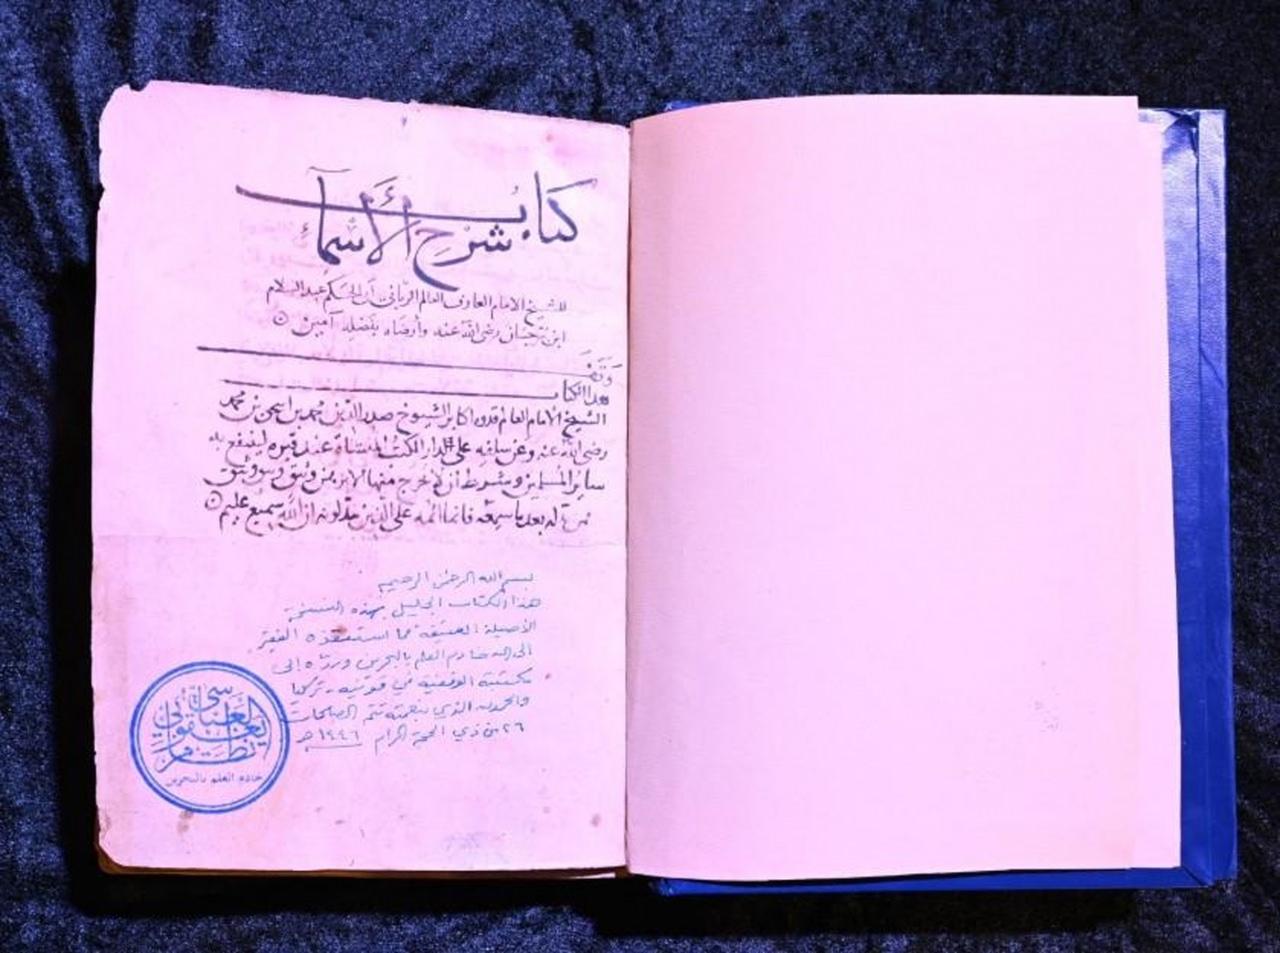 كتاب شرح الأسماء
للشيخ الامام العارف العالم الرباني ابن الحكم عبد السلام
ابن برجان رضي الله عنه وأرضاه بفضله آمين
وقف
هذا الكتاب
الشيخ الامام العالم قدوة اكابر الشيوخ صدر الدين محمد بن اسحق بن محمد
رضي الله عنه وعن سلفه على الدار الكتب المنشاة عند قبره لينتفع به
سائر المسلمين وشرط أن لا يخرج منها الا برهن وثيق
فمن بدله بعد ما سمعه فانما اثمه على الذين يبدلونه ان الله سميع عليم
بسم الله الرحمن الرحيم
هذا الكتاب الجليل بهذه النسخة
الأصيلة العتيقة مما استنقذه الفقير
إلى الله خادم العلم بالبحرين وردّه إلى
مكتبته الوقفية في قونية - تركيا
والحمد لله الذي بنعمته تتم الصالحات
٢٦ من ذي الحجة الحرام ١٤٤٦ هـ
نظام يعقوبي العباسي
خادم العلم بالبحرين